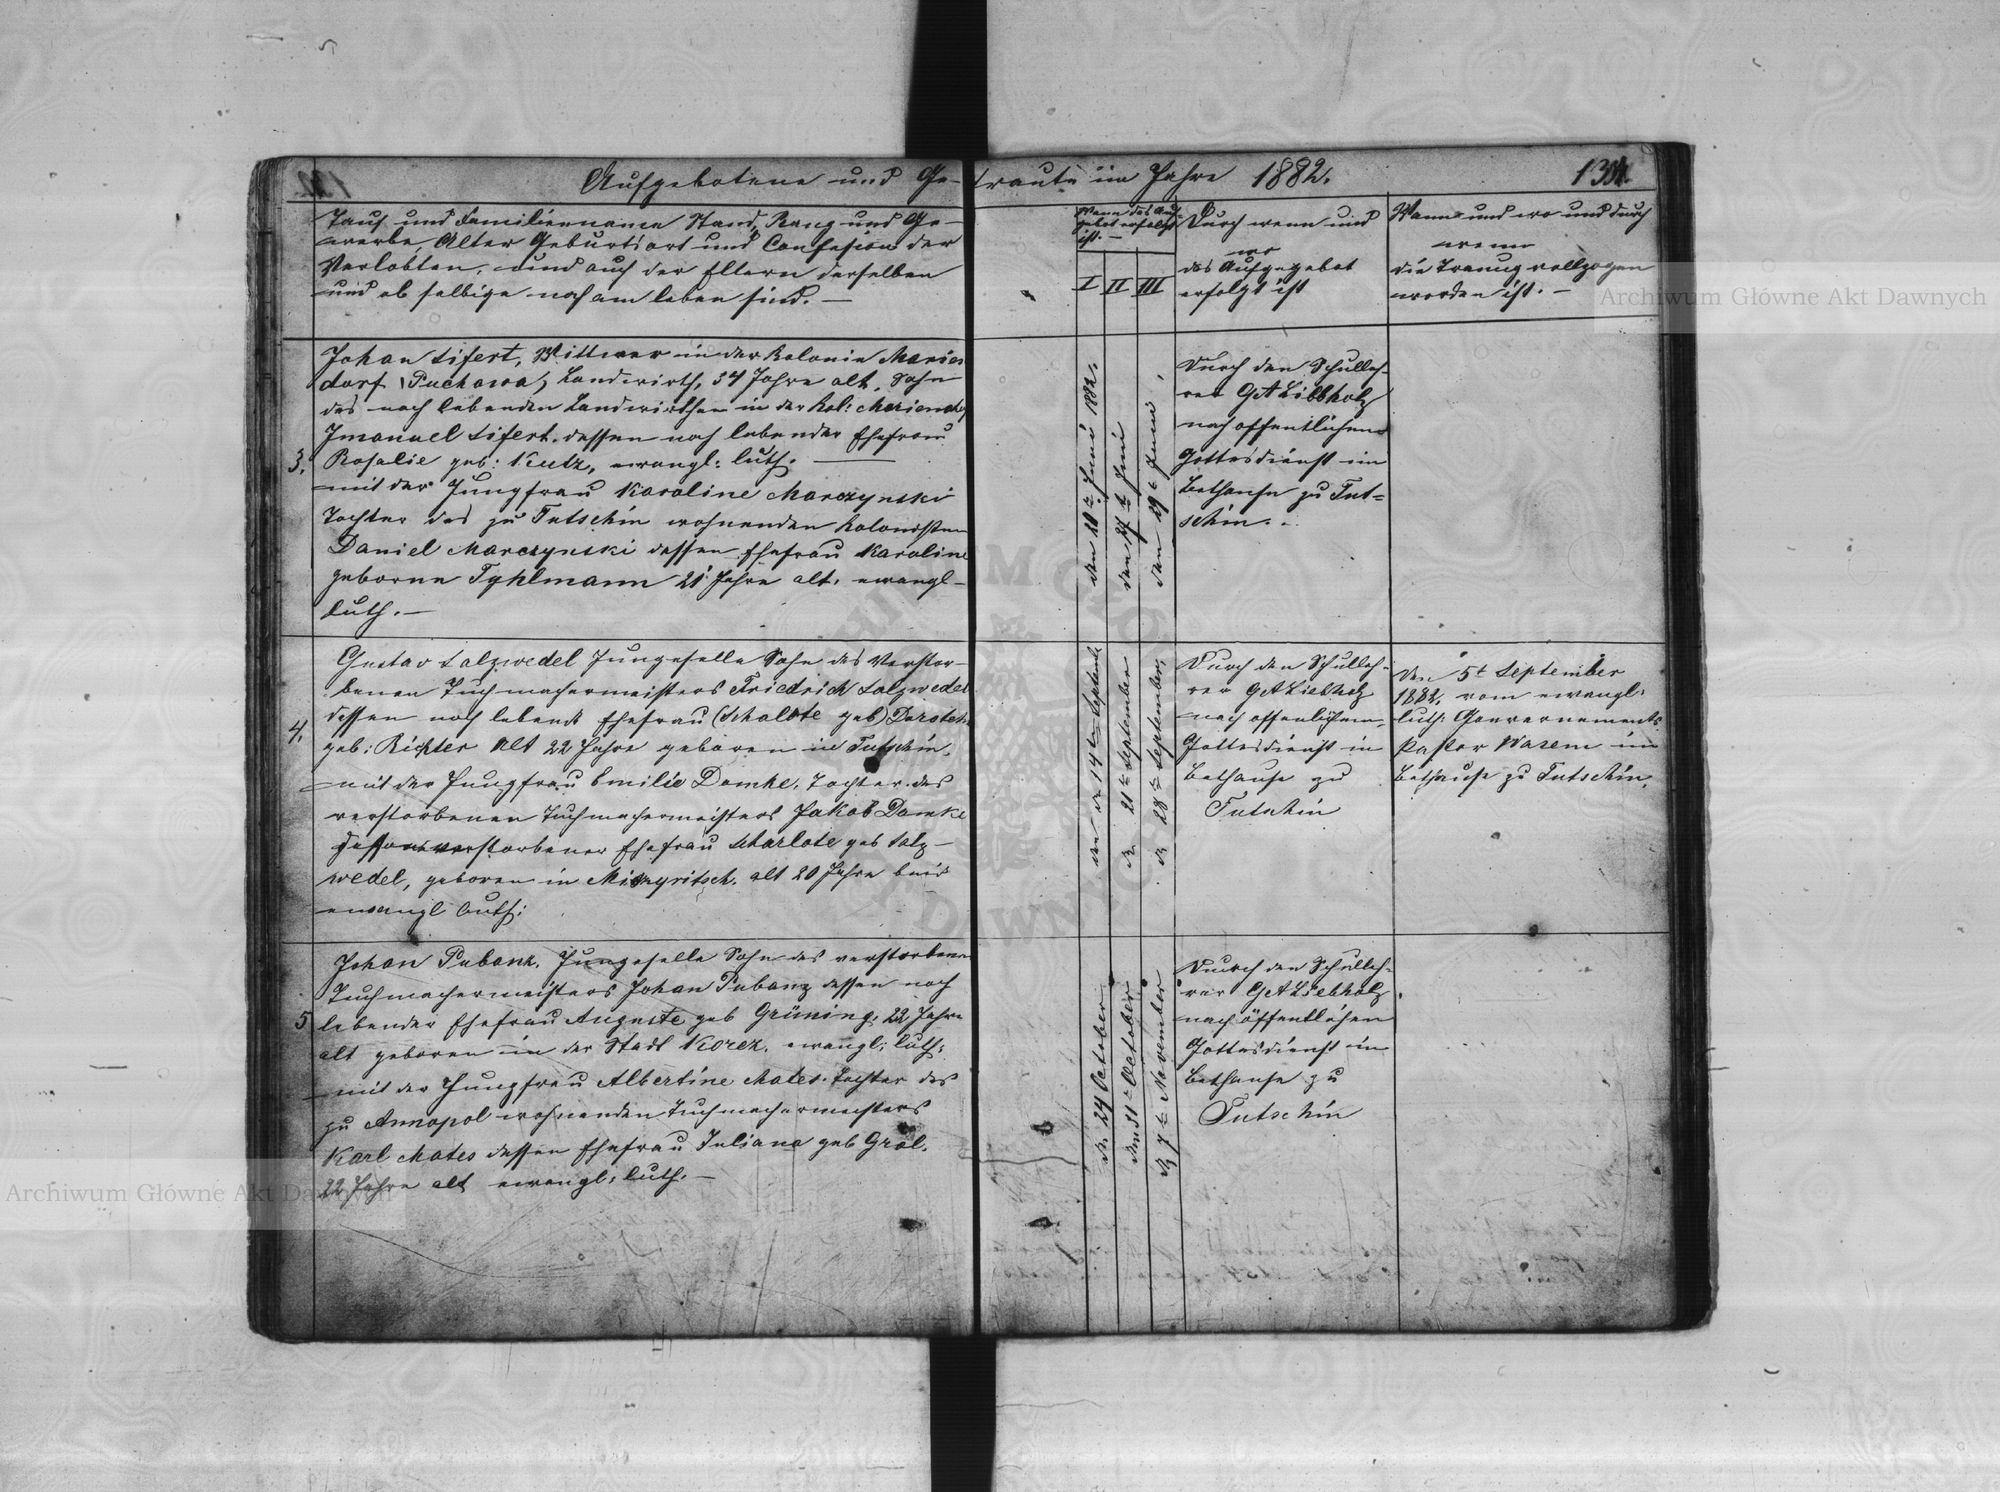 Aufgebotene und Ge- traute im Jahre 1882.
Tauf und Familienname Stand, Rang und Ge-
werbe, Alter Geburtsort und Confesion der
Verlobten, und auch der Eltern derselben
und ob selbige noch am leben sind. —
Wann das Auf-
gebot erfolgt
ist. —
I II III
Durch wenn und
wo
das Aufgegebot
erfolgt ist
Wann und wo und durch
wenn
die Trauug vollzogen
worden ist. —
3.
Johan Sifert, Wittwer in der Kolonie Marien
dorf (Puchowa) Landwirth, 34 Jahre alt. Sohn
des noch lebenden Landwirthen in der Kol:
Imanuel Sifert. dessen noch lebender Ehefrau
Rosalie geb: Kutz, ewangl: luth. —
mit der Jungfrau Karoline Marczynski
Tochter des zu Tutschin wohnenden Kolonisten
Daniel Marczynski dessen Ehefrau Karoline
geborne Tyhlmann 21 Jahre alt. ewangl-
luth. —
den 20t Juni 1882.
den 27t Juni
den 29t Juni
Durch den Schulleh-
rer GALibbholz
nach offentlichen
Gottesdienst im
Bethause zu Tut=
schin. -
4.
Gustav Salzwedel Jungeselle Sohn des Verstor-
benen Tuchmachermeisters Friedrich Salzwedel
dessen noch lebende Ehefrau (Schalote geb)
geb: Richter Alt 22 Jahre geboren in Tutschin.
mit der Jungfrau Emilie Domke. Tochter des
verstorbenen Tuchmachermeisters Jakob Domke
dessen verstorbener Ehefrau Scharlote geb Salz-
wedel, geboren in alt 20 Jahre beid
ewangl luth:
14t September
21t September
28t September
Durch den Schulleh-
rer GALiebholz
nach offenlichem
Gottesdienst in
Bethause zu
Tutschin
Den 5t September
1882. vom ewangl:
luth: Gouvernements
Pastor Wasem im
Bethause zu Tutschin.
5
Johan Pubanz. Jungeselle Sohn des verstorbenen
Tuchmachermeisters Johan Pubanz dessen noch
lebender Ehefrau Auguste geb Grüning. 22 Jahre
alt geboren in der Stadt Korez. ewangl: luth:
mit der Jungfrau Albertine Mates. Tochter des
zu Annopol wohnenden Tuchmachermeisters
Karl Mates dessen Ehefrau Juliana geb Gral.
22 Jahre alt ewangl: luth. —
den 24 October
den 31t October
7t November
Durch den Schulleh-
rer GALiebholz
nach öffentlichen
Gottesdienst in
Bethause zu
Tutschin
Archiwum Główne Akt Dawnych
Archiwum Główne Akt Dawnych